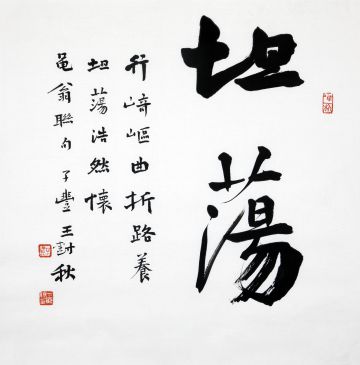 坦蕩
行崎嶇曲折路養
坦蕩浩然懷
黽翁聯句子豐王對秋